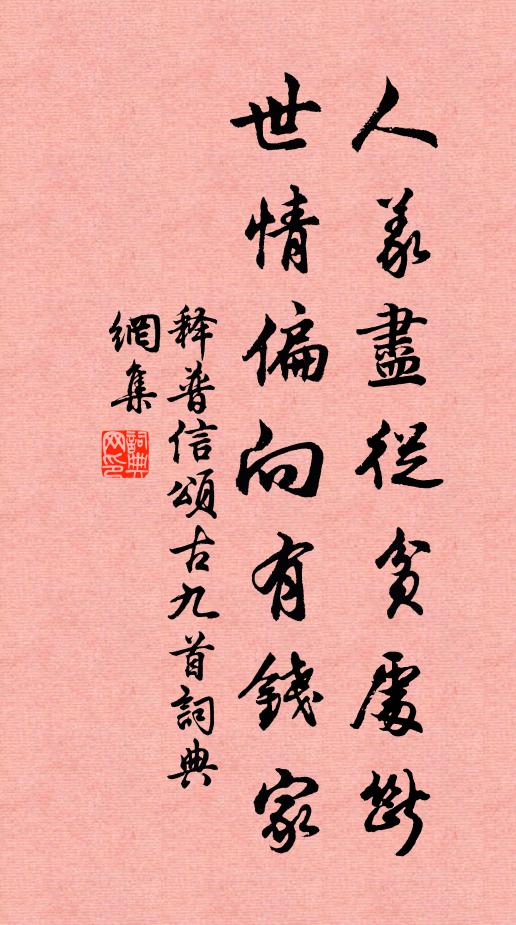 人義盡從貧處斷
世情偏向有錢家
释普信頌古九首詞典
網集
詞典
网印